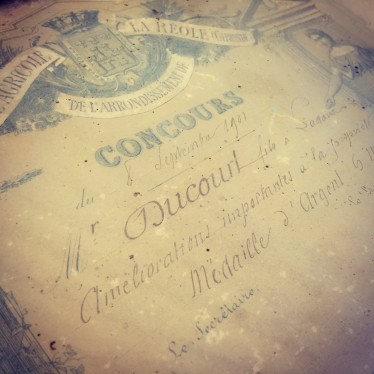 AGRICOLE
DE L'ARRONDISSEMENT DE
LA RÉOLE (GIRONDE)
CONCOURS
du 8 Septembre 1901
Mr Ducourt fils à
Améliorations importantes à la
Médaille d'Argent
Le Secrétaire,